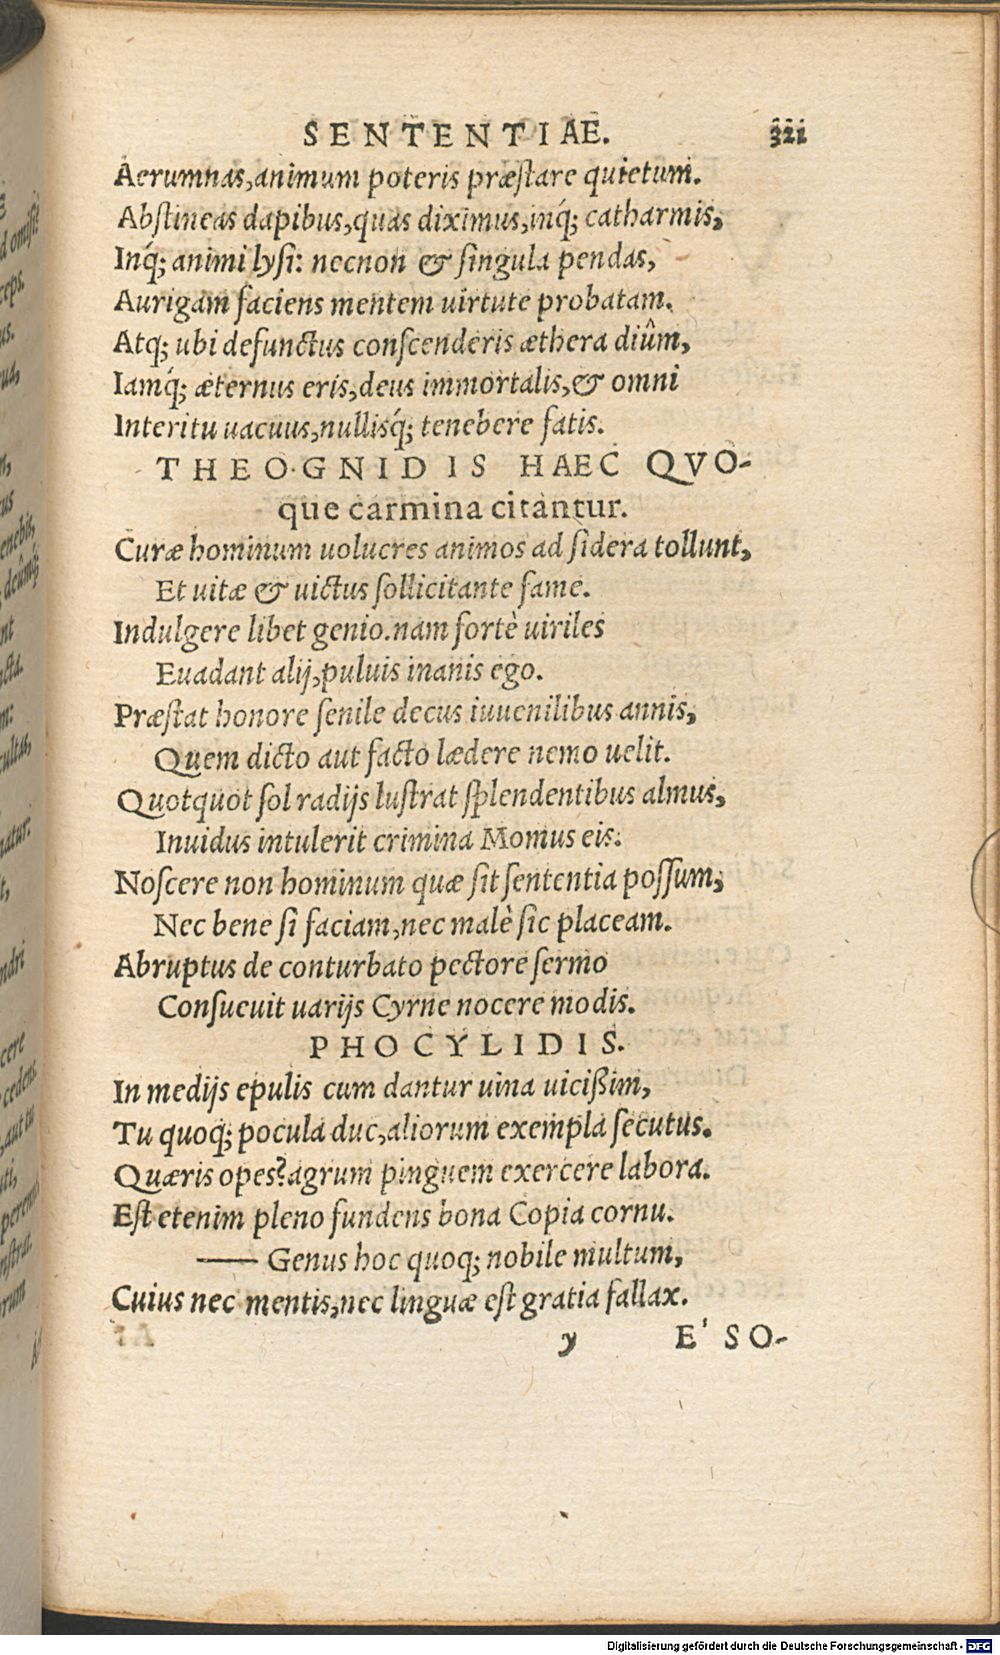 SENTENTIAE. 321
Aerumnas, animum poteris præstare quietum.
Abstineas dapibus, quas diximus, inq́; catharmis,
Inq́; animi lysi: necnon & singula pendas,
Aurigam faciens mentem uirtute probatam.
Atq; ubi defunctus conscenderis æthera diûm,
Iamq́; æternus eris, deus immortalis, & omni
Interitu uacuus, nullisq́; tenebere fatis.
THEOGNIDIS HAEC QVO-
que carmina citantur.
Curæ hominum uolucres animos ad sidera tollunt,
Et uitæ & uictus sollicitante fame.
Indulgere libet genio. nam fortè uiriles
Euadant alij, puluis inanis ego.
Præstat honore senile decus iuuenilibus annis,
Quem dicto aut facto lædere nemo uelit.
Quotquot sol radijs lustrat splendentibus almus,
Inuidus intulerit crimina Momus eis.
Noscere non hominum quæ sit sententia possum,
Nec bene si faciam, nec malè sic placeam.
Abruptus de conturbato pectore sermo
Consueuit uarijs Cyrne nocere modis.
PHOCYLIDIS.
In medijs epulis cum dantur uina uicißim,
Tu quoq; pocula duc, aliorum exempla secutus.
Quæris opes? agrum pinguem exercere labora.
Est etenim pleno fundens bona Copia cornu.
—— Genus hoc quoq; nobile multum,
Cuius nec mentis, nec linguæ est gratia fallax.
y E' SO-
Digitalisierung gefördert durch die Deutsche Forschungsgemeinschaft - DFG